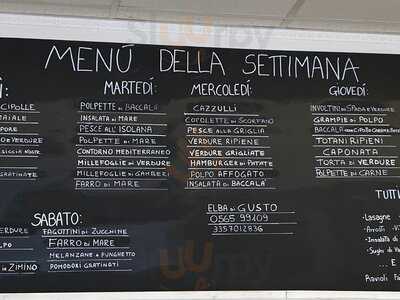 MENÚ DELLA SETTIMANA
Í:
CIPOLLE
MAIALE
VERDURE
SICCIA
GRATINATE
MARTEDÍ:
POLPETTE DI BACCALÀ
INSALATA DI MARE
PESCE ALL'ISOLANA
POLPETTE DI MARE
CONTORNO MEDITERRANEO
MILLEFOGLIE DI VERDURE
MILLEFOGLIE DI GAMBERI
FARRO DI MARE
MERCOLEDÍ:
CAZZULLI
COTOLETTE DI SCORFANO
PESCE ALLA GRIGLIA
VERDURE RIPIENE
VERDURE GRIGLIATE
HAMBURGER DI PATATE
POLPO AFFOGATO
INSALATA DI BACCALÀ
GIOVEDÍ:
INVOLTINI DI SPADA E VERDURE
GRAMPIE DI POLPO
BACCALÀ CON CIPOLLA
TOTANI RIPIENI
CAPONATA
TORTA DI VERDURE
POLPETTE DI CARNE
VERDURE
LPO
IN ZIMINO
SABATO:
FAGOTTINI DI ZUCCHINE
FARRO DI MARE
MELANZANE A FUNGHETTO
POMODORI GRATINATI
ELBA DI GUSTO
0565 99109
3357012836
TUTTI
-Lasagne
-Arrosti
-Insalata di
-Sughi di
... E
Ravioli